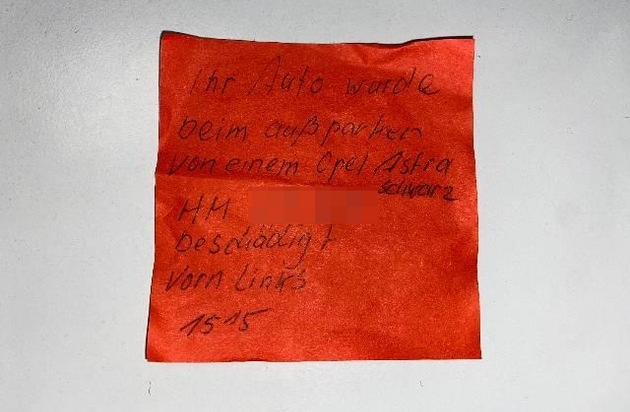 Ihr Auto wurde
beim außparken
von einem Opel Astra
schwarz
HM
beschädigt
vorn Links
1515